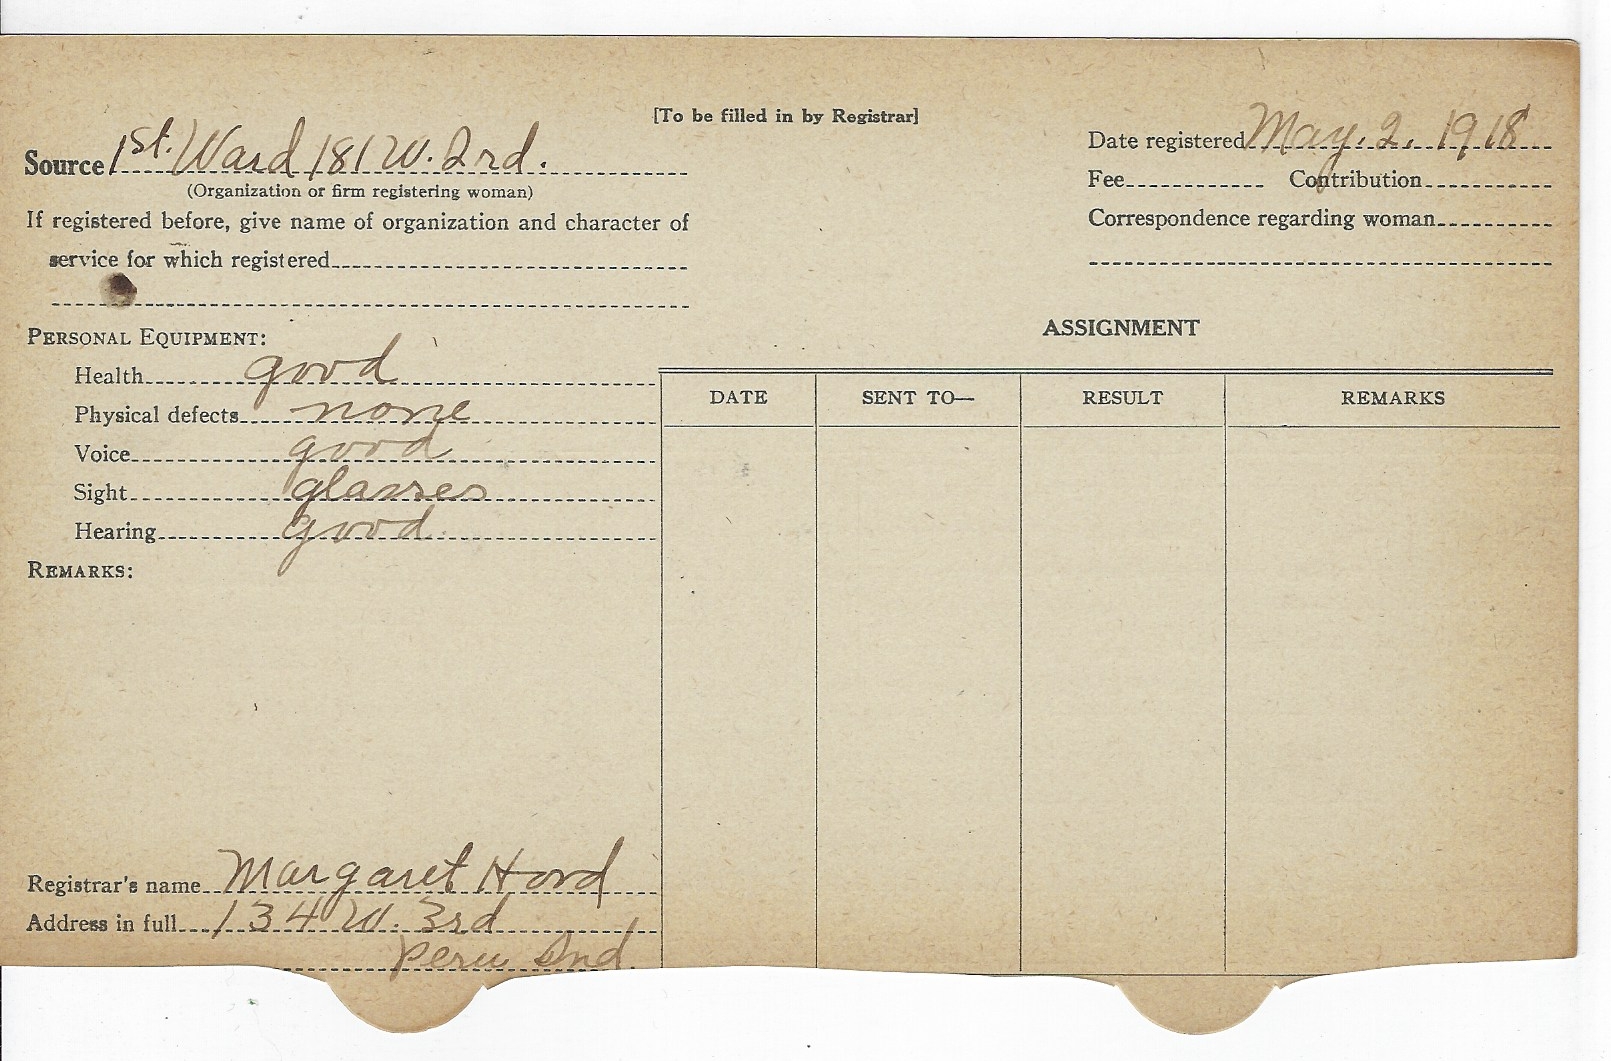 [To be filled in by Registrar]
Source 1st. Ward 181 W. 2rd.
(Organization or firm registering woman)
If registered before, give name of organization and character of
service for which registered
Date registered May. 2. 1918
Fee Contribution
Correspondence regarding woman
PERSONAL EQUIPMENT:
Health good
Physical defects none
Voice good
Sight glasses
Hearing good
REMARKS:
ASSIGNMENT
DATE SENT TO— RESULT REMARKS
Registrar's name Margaret Hord
Address in full 134 W. 3rd
Peru Ind.